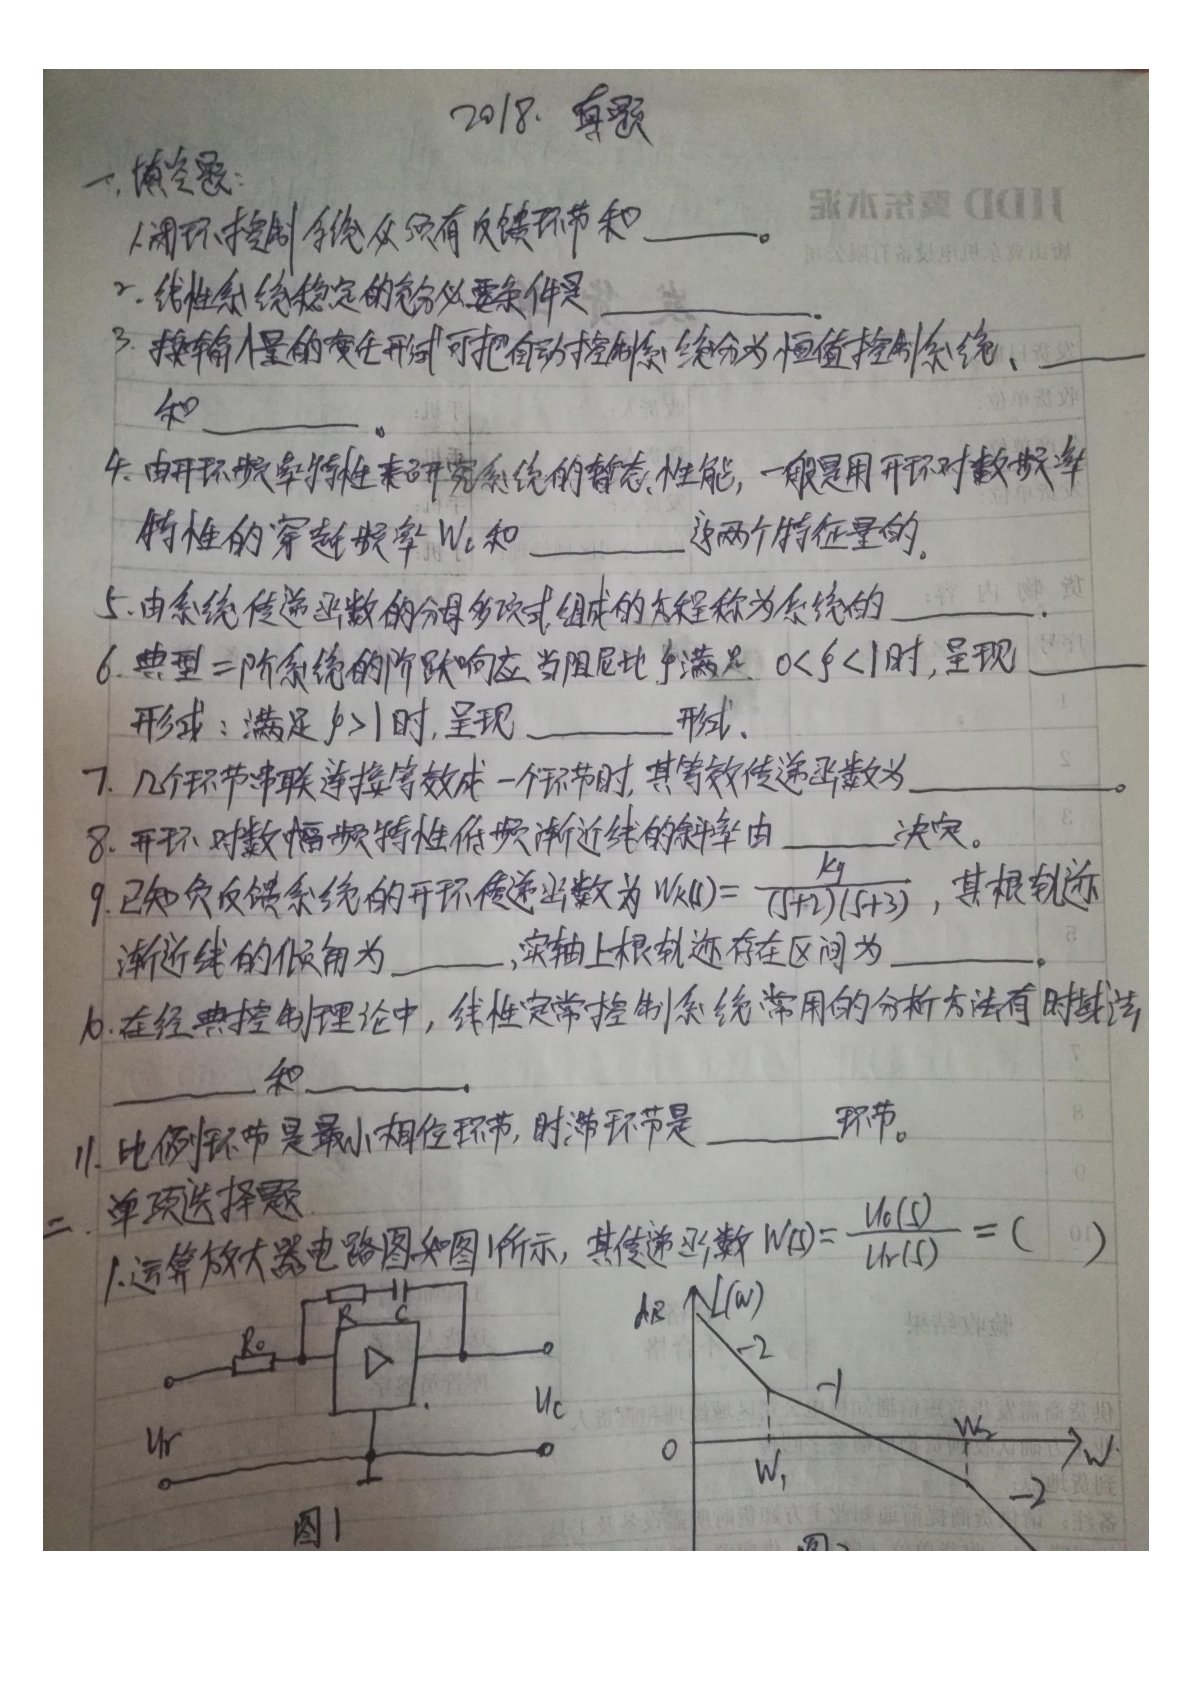 2018. 真题
一、填空题:
1.闭环控制系统必须有反馈环节和______。
2.线性系统稳定的充分必要条件是______.
3.按输入量的变化形式可把自动控制系统分为恒值控制系统、______
和______。
4.由开环频率特性来研究系统的暂态性能,一般是用开环对数频率
特性的穿越频率Wc和______这两个特征量的.
5.由系统传递函数的分母多项式组成的方程称为系统的______.
6.典型二阶系统的阶跃响应当阻尼比ξ满足 0<ξ<1时,呈现______
形式:满足ξ>1时,呈现______形式.
7.几个环节串联连接等效成一个环节时,其等效传递函数为______。
8.开环对数幅频特性低频渐近线的斜率由______决定。
9.已知负反馈系统的开环传递函数为Wk(s)=Kg/(S+2)(S+3),其根轨迹
渐近线的倾角为______,实轴上根轨迹存在区间为______。
10.在经典控制理论中,线性定常控制系统常用的分析方法有时域法
______和______.
11.比例环节是最小相位环节,时滞环节是______环节。
二.单项选择题
1.运算放大器电路图如图1所示,其传递函数W(s)=Uc(s)/Ur(s)=( )
R C
R0
Ur
Uc
图1
dB L(w)
-2
-1
W2
0
W1
W
-2
图2